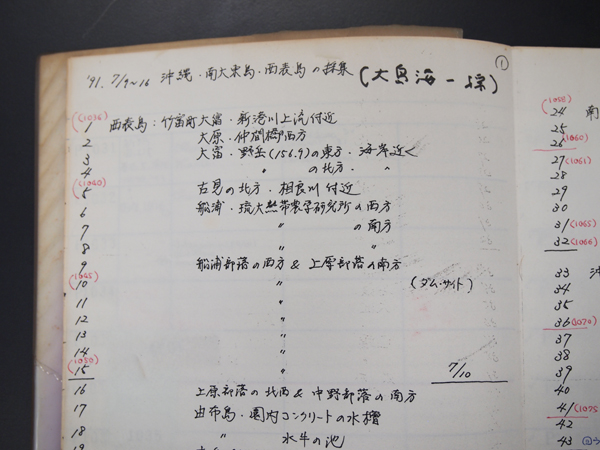 ①
'91. 7/9~16 沖縄・南大東島・西表島の採集 (大島海一採)
(1036)
1 西表島: 竹富町大富・新港川上流付近
2 大原・仲間橋西方
3 大富・野岳(156.9)の東方・海岸近く
4 〃 の北方・〃
(1040)
5 古見の北方・相良川付近
6 船浦・琉大熱帯農学研究所の西方
7 〃 の南方
8 〃 〃
9 船浦部落の西方 & 上原部落の南方
(1045)
10 〃 (ダム・サイト)
11 〃
12 〃
13 〃
14 〃
(1050)
15 〃 7/10
16 上原部落の北西 & 中野部落の南方
17 由布島・園内コンクリートの水槽
18 〃 水牛の池
19
(1058)
24 南
25
26 (1060)
27 (1061)
28
29
30
31 (1065)
32 (1066)
33 沖
34
35
36 (1070)
37
38
39
40
41 (1075
42
43